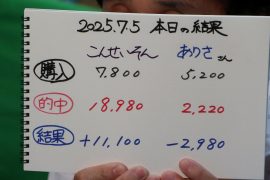 2025.7.5 本日の結果
こんせいそん ありささん
購入 7,800 5,200
的中 18,980 2,220
結果 +11,100 -2,980